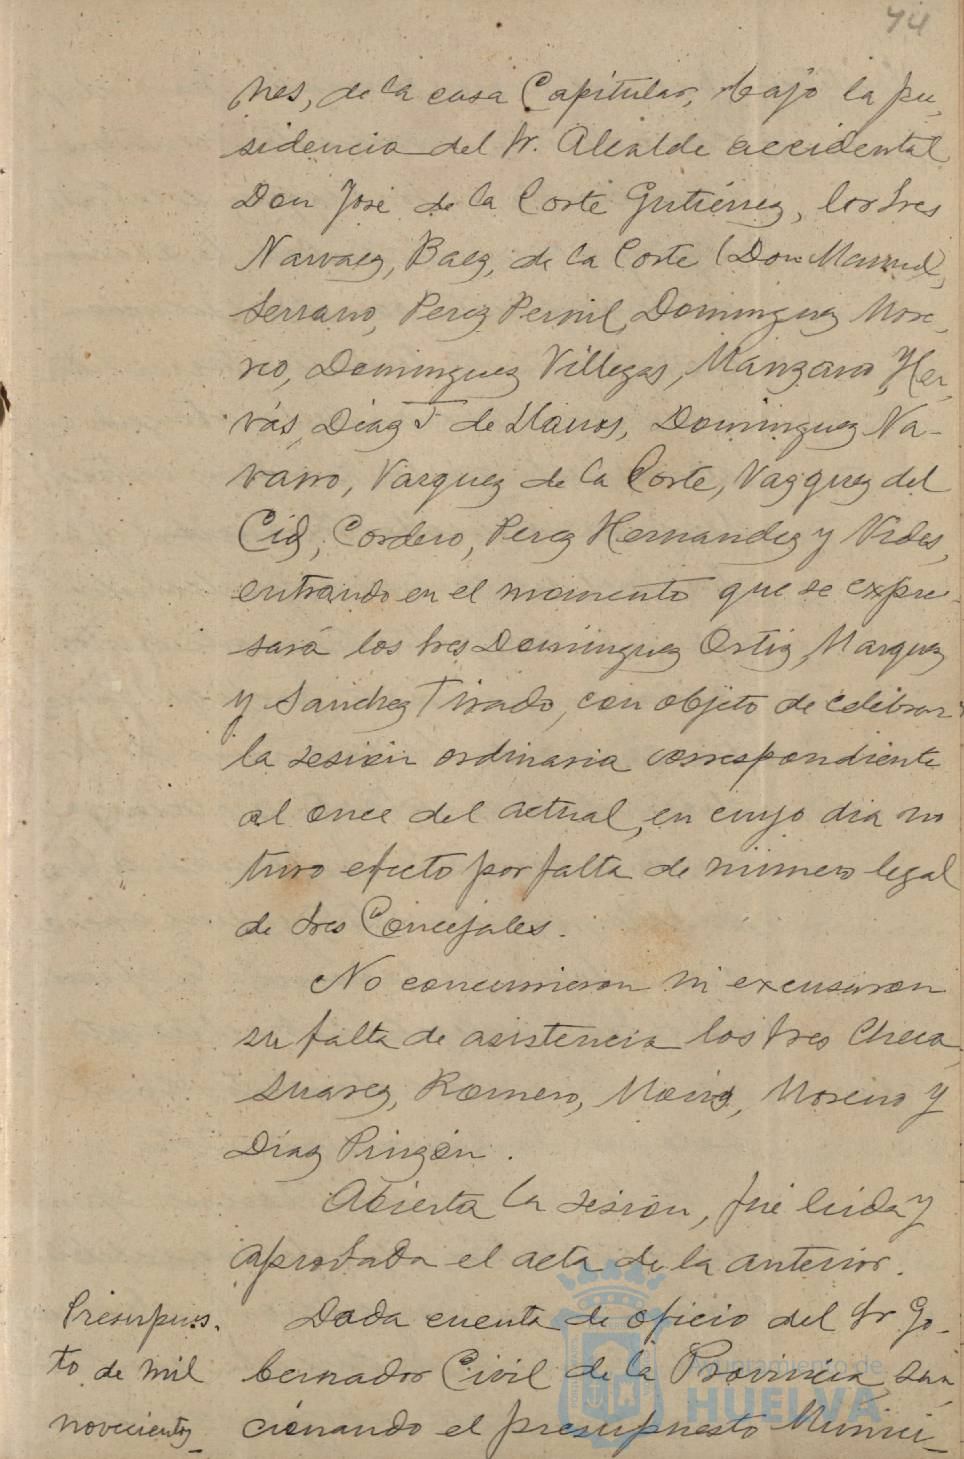 74
nes, de la casa Capitular, bajo la pre-
sidencia del Sr. Alcalde accidental
Don José de la Corte Gutiérrez, los Sres
Narvaez, Baez, de la Corte (Don Manuel),
Serrano, Perez Pernil, Dominguez More-
no, Dominguez Villegas, Manzano, Her-
vás, Diaz F. de Llanos, Dominguez Na-
varro, Vazquez de la Corte, Vazquez del
Cid, Cordero, Perez Hernandez y Vides,
entrando en el momento que se expre-
sará los Sres Dominguez Ortiz, Marquez
y Sanchez Tirado, con objeto de celebrar
la sesión ordinaria correspondiente
al once del actual, en cuyo dia no
tuvo efecto por falta de número legal
de Sres Concejales.
No concurrieron ni excusaron
su falta de asistencia los Sres Checa,
Suarez, Romero, Moreno y
Díaz Pinzón.
Abierta la sesión, fué leida y
aprobada el acta de la anterior.
Presupues-
to de mil
novecientos
Dada cuenta de oficio del Sr Go-
bernador Civil de la Provincia, san-
cionando el presupuesto Munici-
Ayuntamiento de
HUELVA